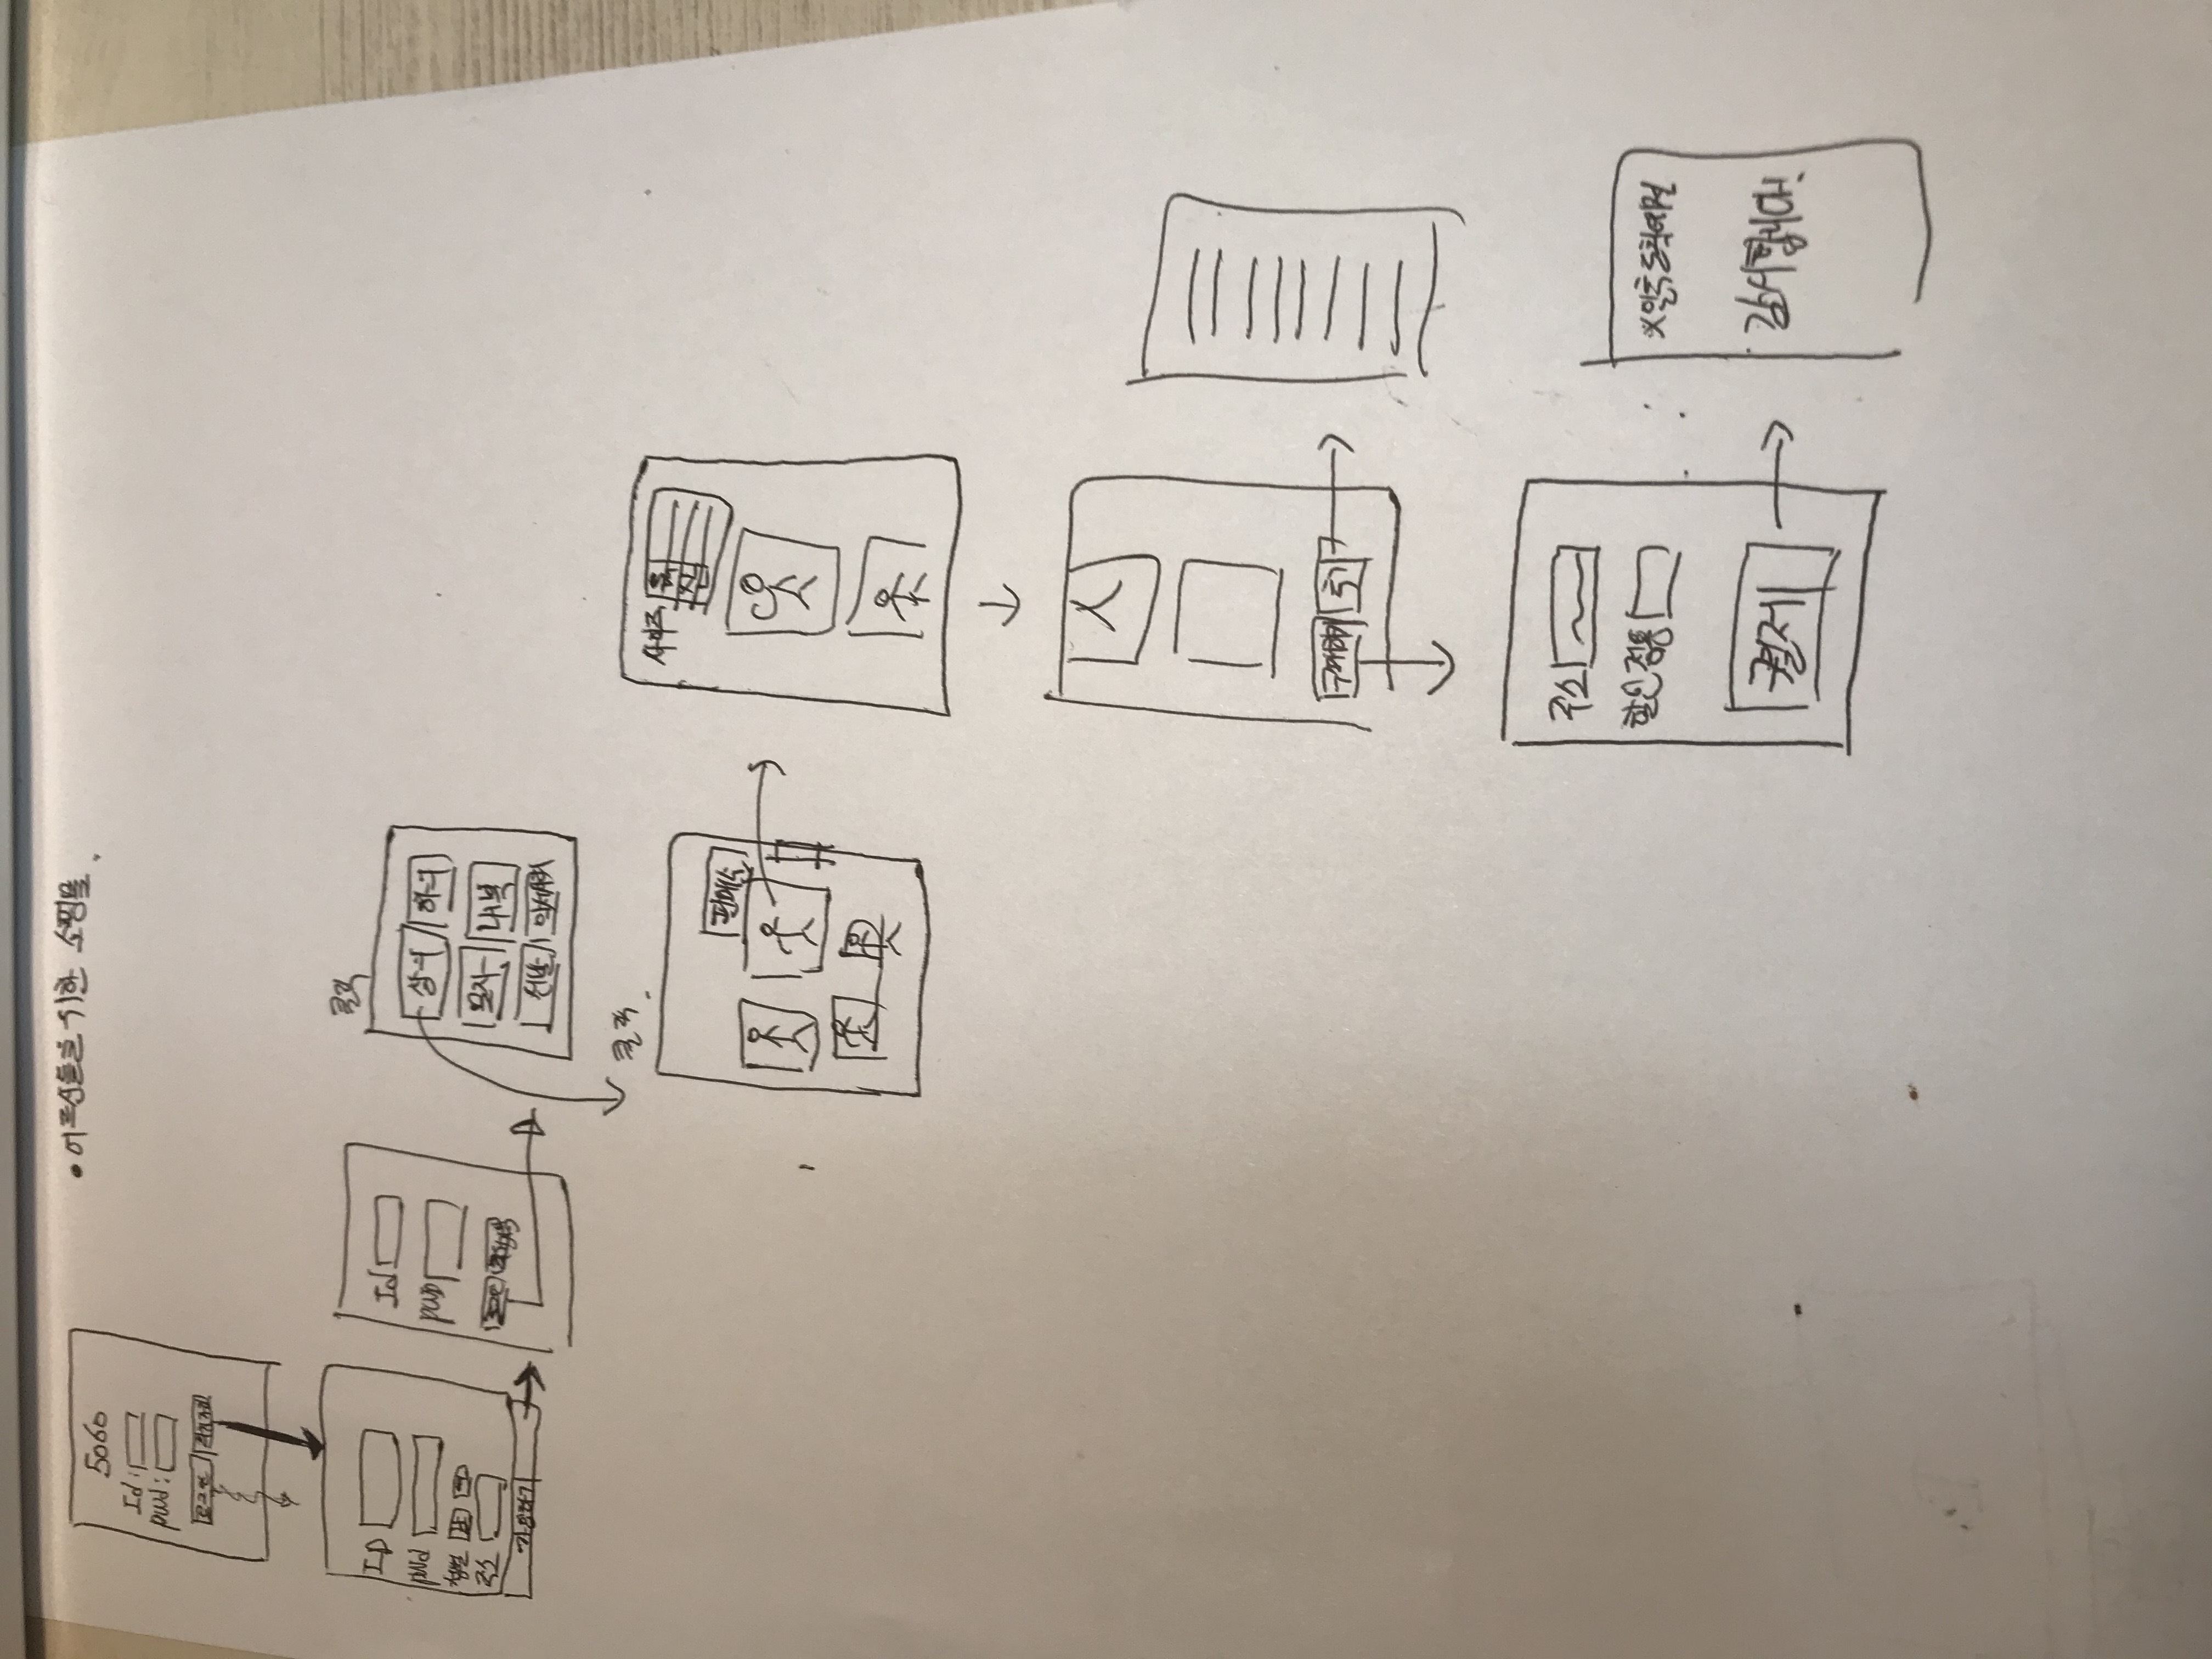 • 어르신들을 위한 쇼핑몰.
5060
Id:
pwd:
로그인 회원가입
ID
pwd
성별 남 여
주소
가입하기
Id
pwD
로그인 회원가입
클릭
상의 하의
모자 내복
신발 악세사리
클릭.
판매순
사이즈
구매하기 후기
주소
할인 적용
결제
x일 후 도착예정
감사합니다!